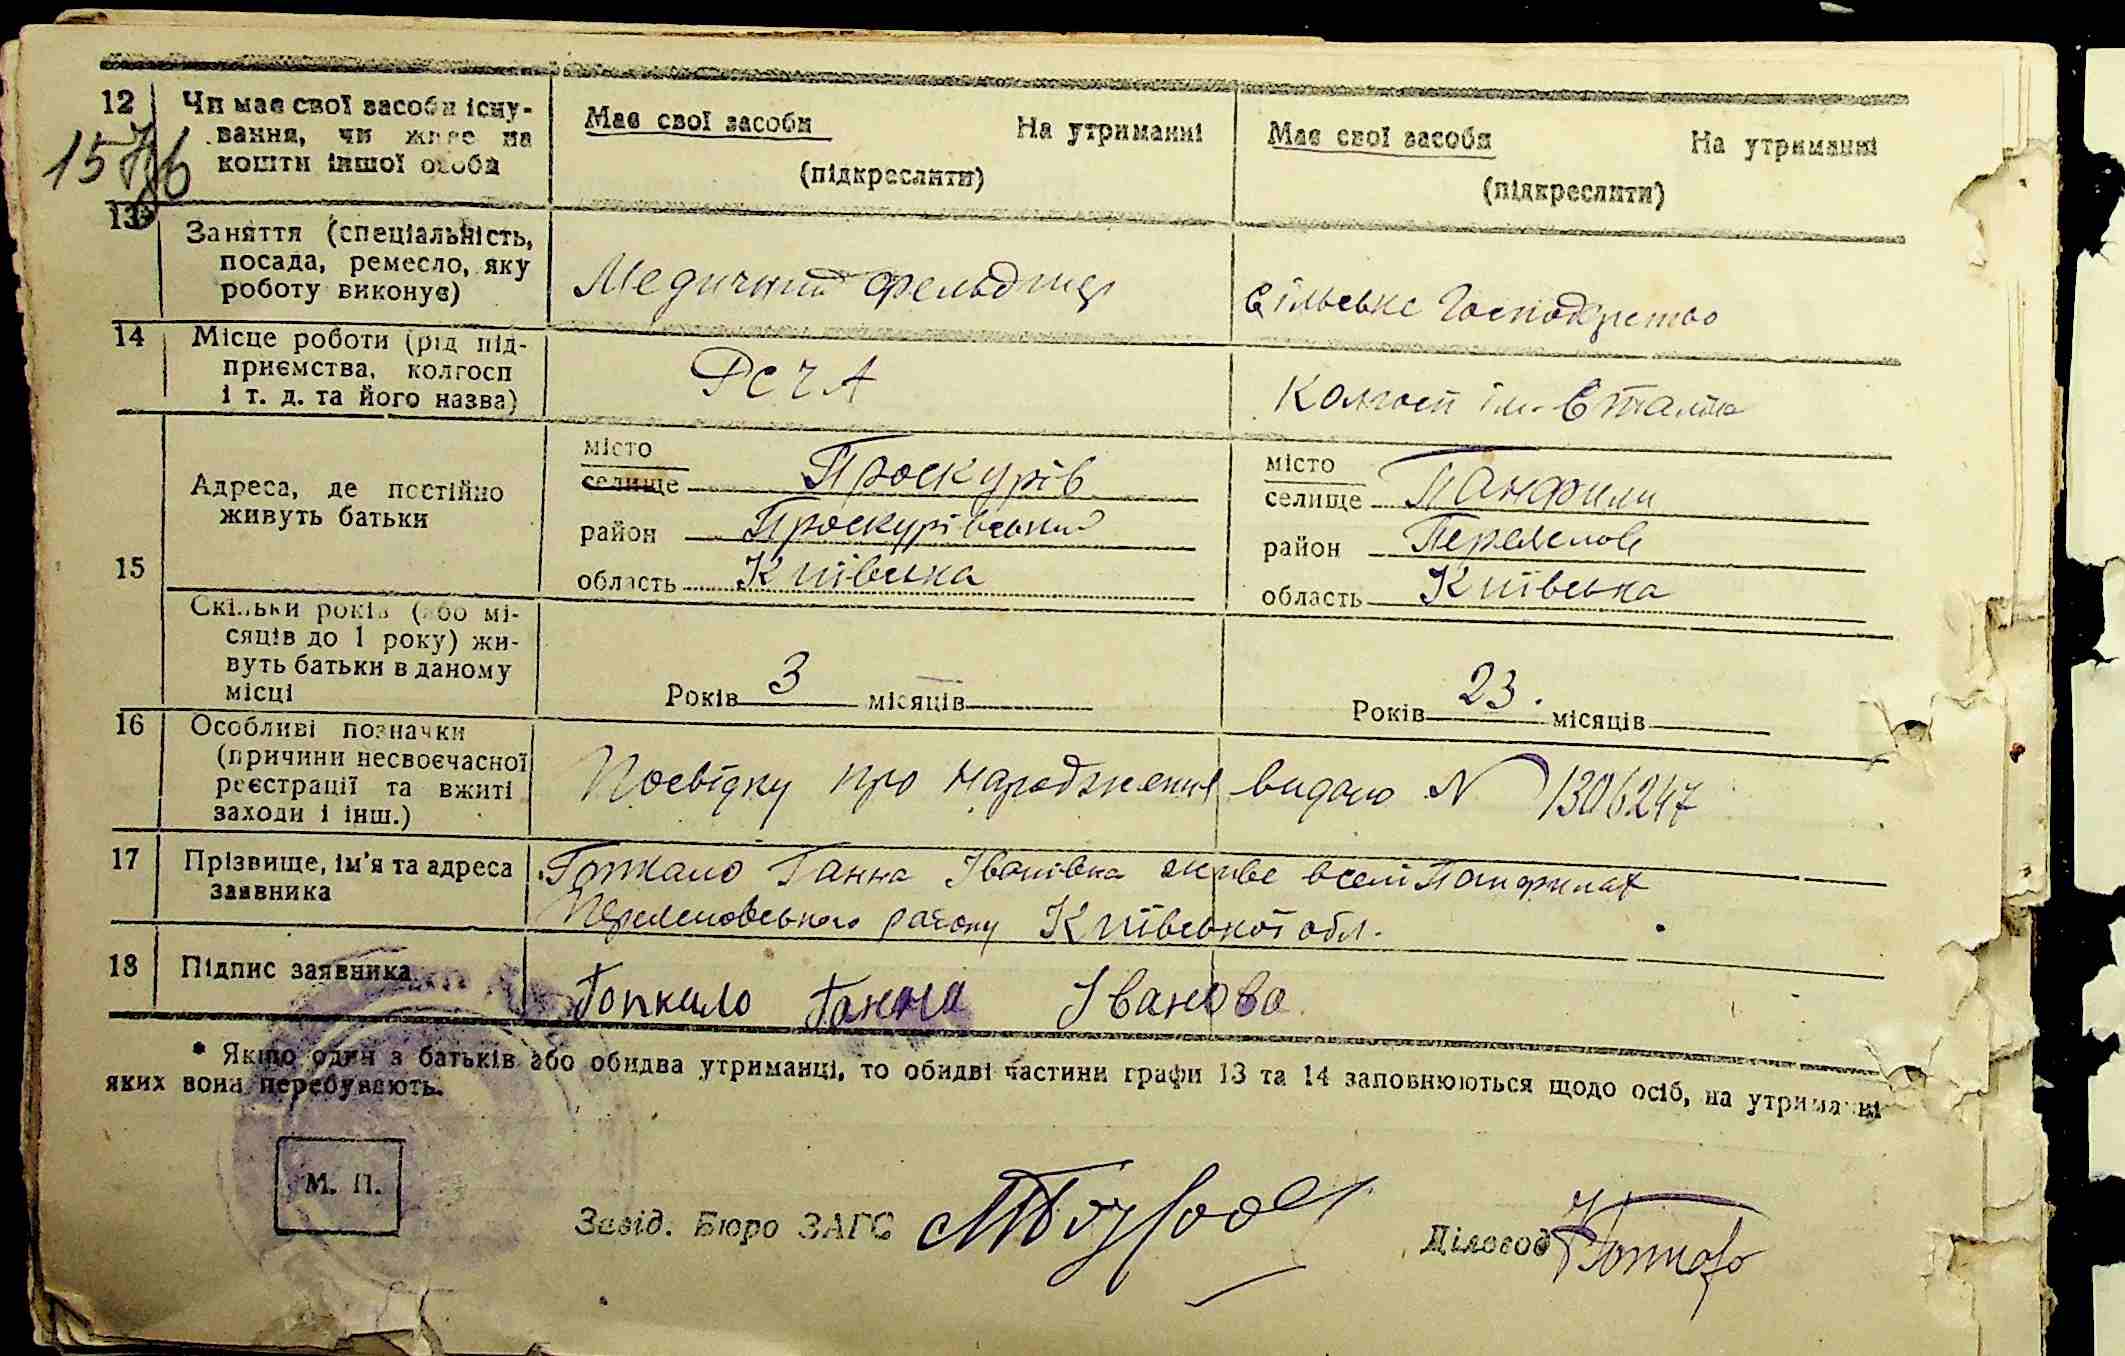 12 Чи має свої засоби існу-
вання, чи живе на
кошти іншої особи
Має свої засоби На утриманні
(підкреслити)
Має свої засоби На утриманні
(підкреслити)
13 Заняття (спеціальність,
посада, ремесло, яку
роботу виконує)
Медичний фельдшер
Сільське Господарство
14 Місце роботи (рід під-
приємства, колгосп
і т. д. та його назва)
РСЧА
Колгосп ім. Сталіна
15 Адреса, де постійно
живуть батьки
місто
селище Проскурів
район Проскурівський
область Київська
місто
селище Панфили
район
область Київська
Скільки років (або мі-
сяців до 1 року) жи-
вуть батьки в даному
місці
Років 3 місяців
Років 23. місяців
16 Особливі позначки
(причини несвоєчасної
реєстрації та вжиті
заходи і інш.)
Посвідку про народження видано N 1306247
17 Прізвище, ім'я та адреса
заявника
Гопкало Ганна Іванівна живе в селі Панфилах
району Київської обл.
18 Підпис заявника
Гопкало Ганна Іванова
* Якщо один з батьків або обидва утриманці, то обидві частини графи 13 та 14 заповнюються щодо осіб, на утриманні
яких вони перебувають.
М. П.
Завід. Бюро ЗАГС
Діловод